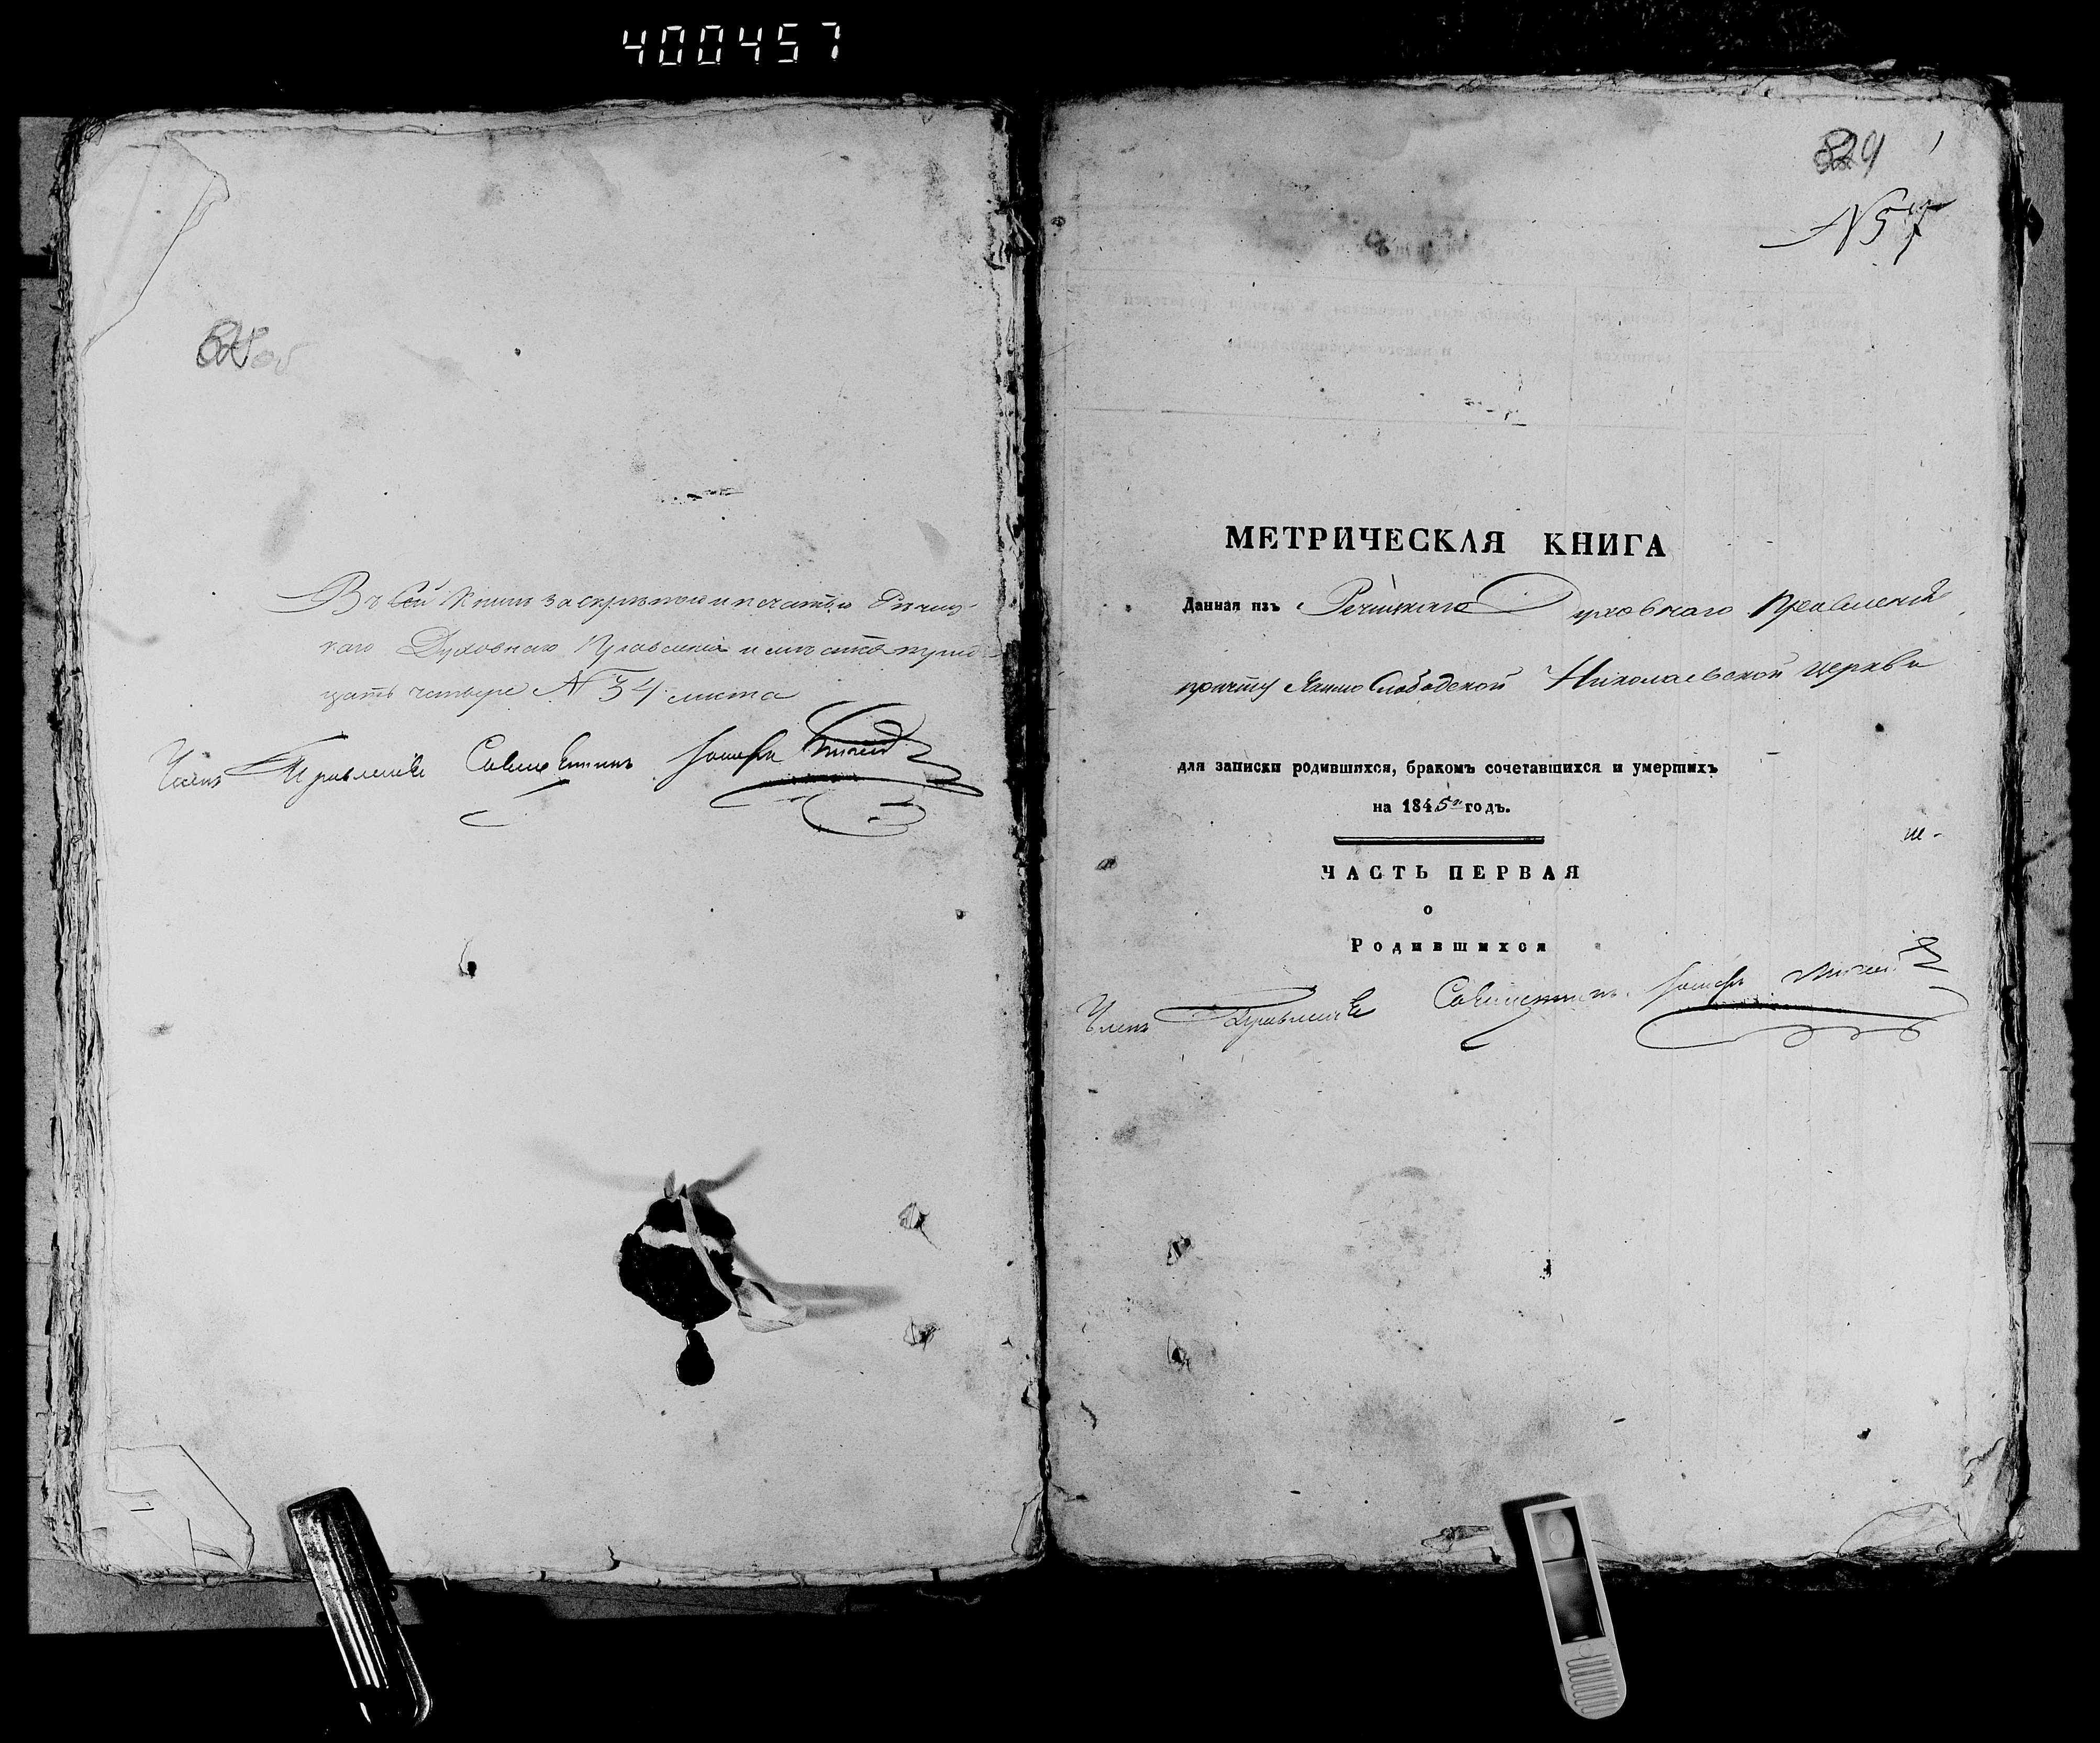 400457
Въ сей книгѣ за скрѣпою и печатью Речиц-
каго Духовнаго Правленія имѣетъ трид-
цать четыре № 34 листа
Членъ Правленія Священникъ
829 1
№ 57
МЕТРИЧЕСКАЯ КНИГА
Данная изъ Речицкаго Духовнаго Правленія
причту Якимо Слободской Николаевской церкви
для записки родившихся, бракомъ сочетавшихся и умершихъ
на 1845й годъ.
ЧАСТЬ ПЕРВАЯ
о
Родившихся
Членъ Правленія Священникъ